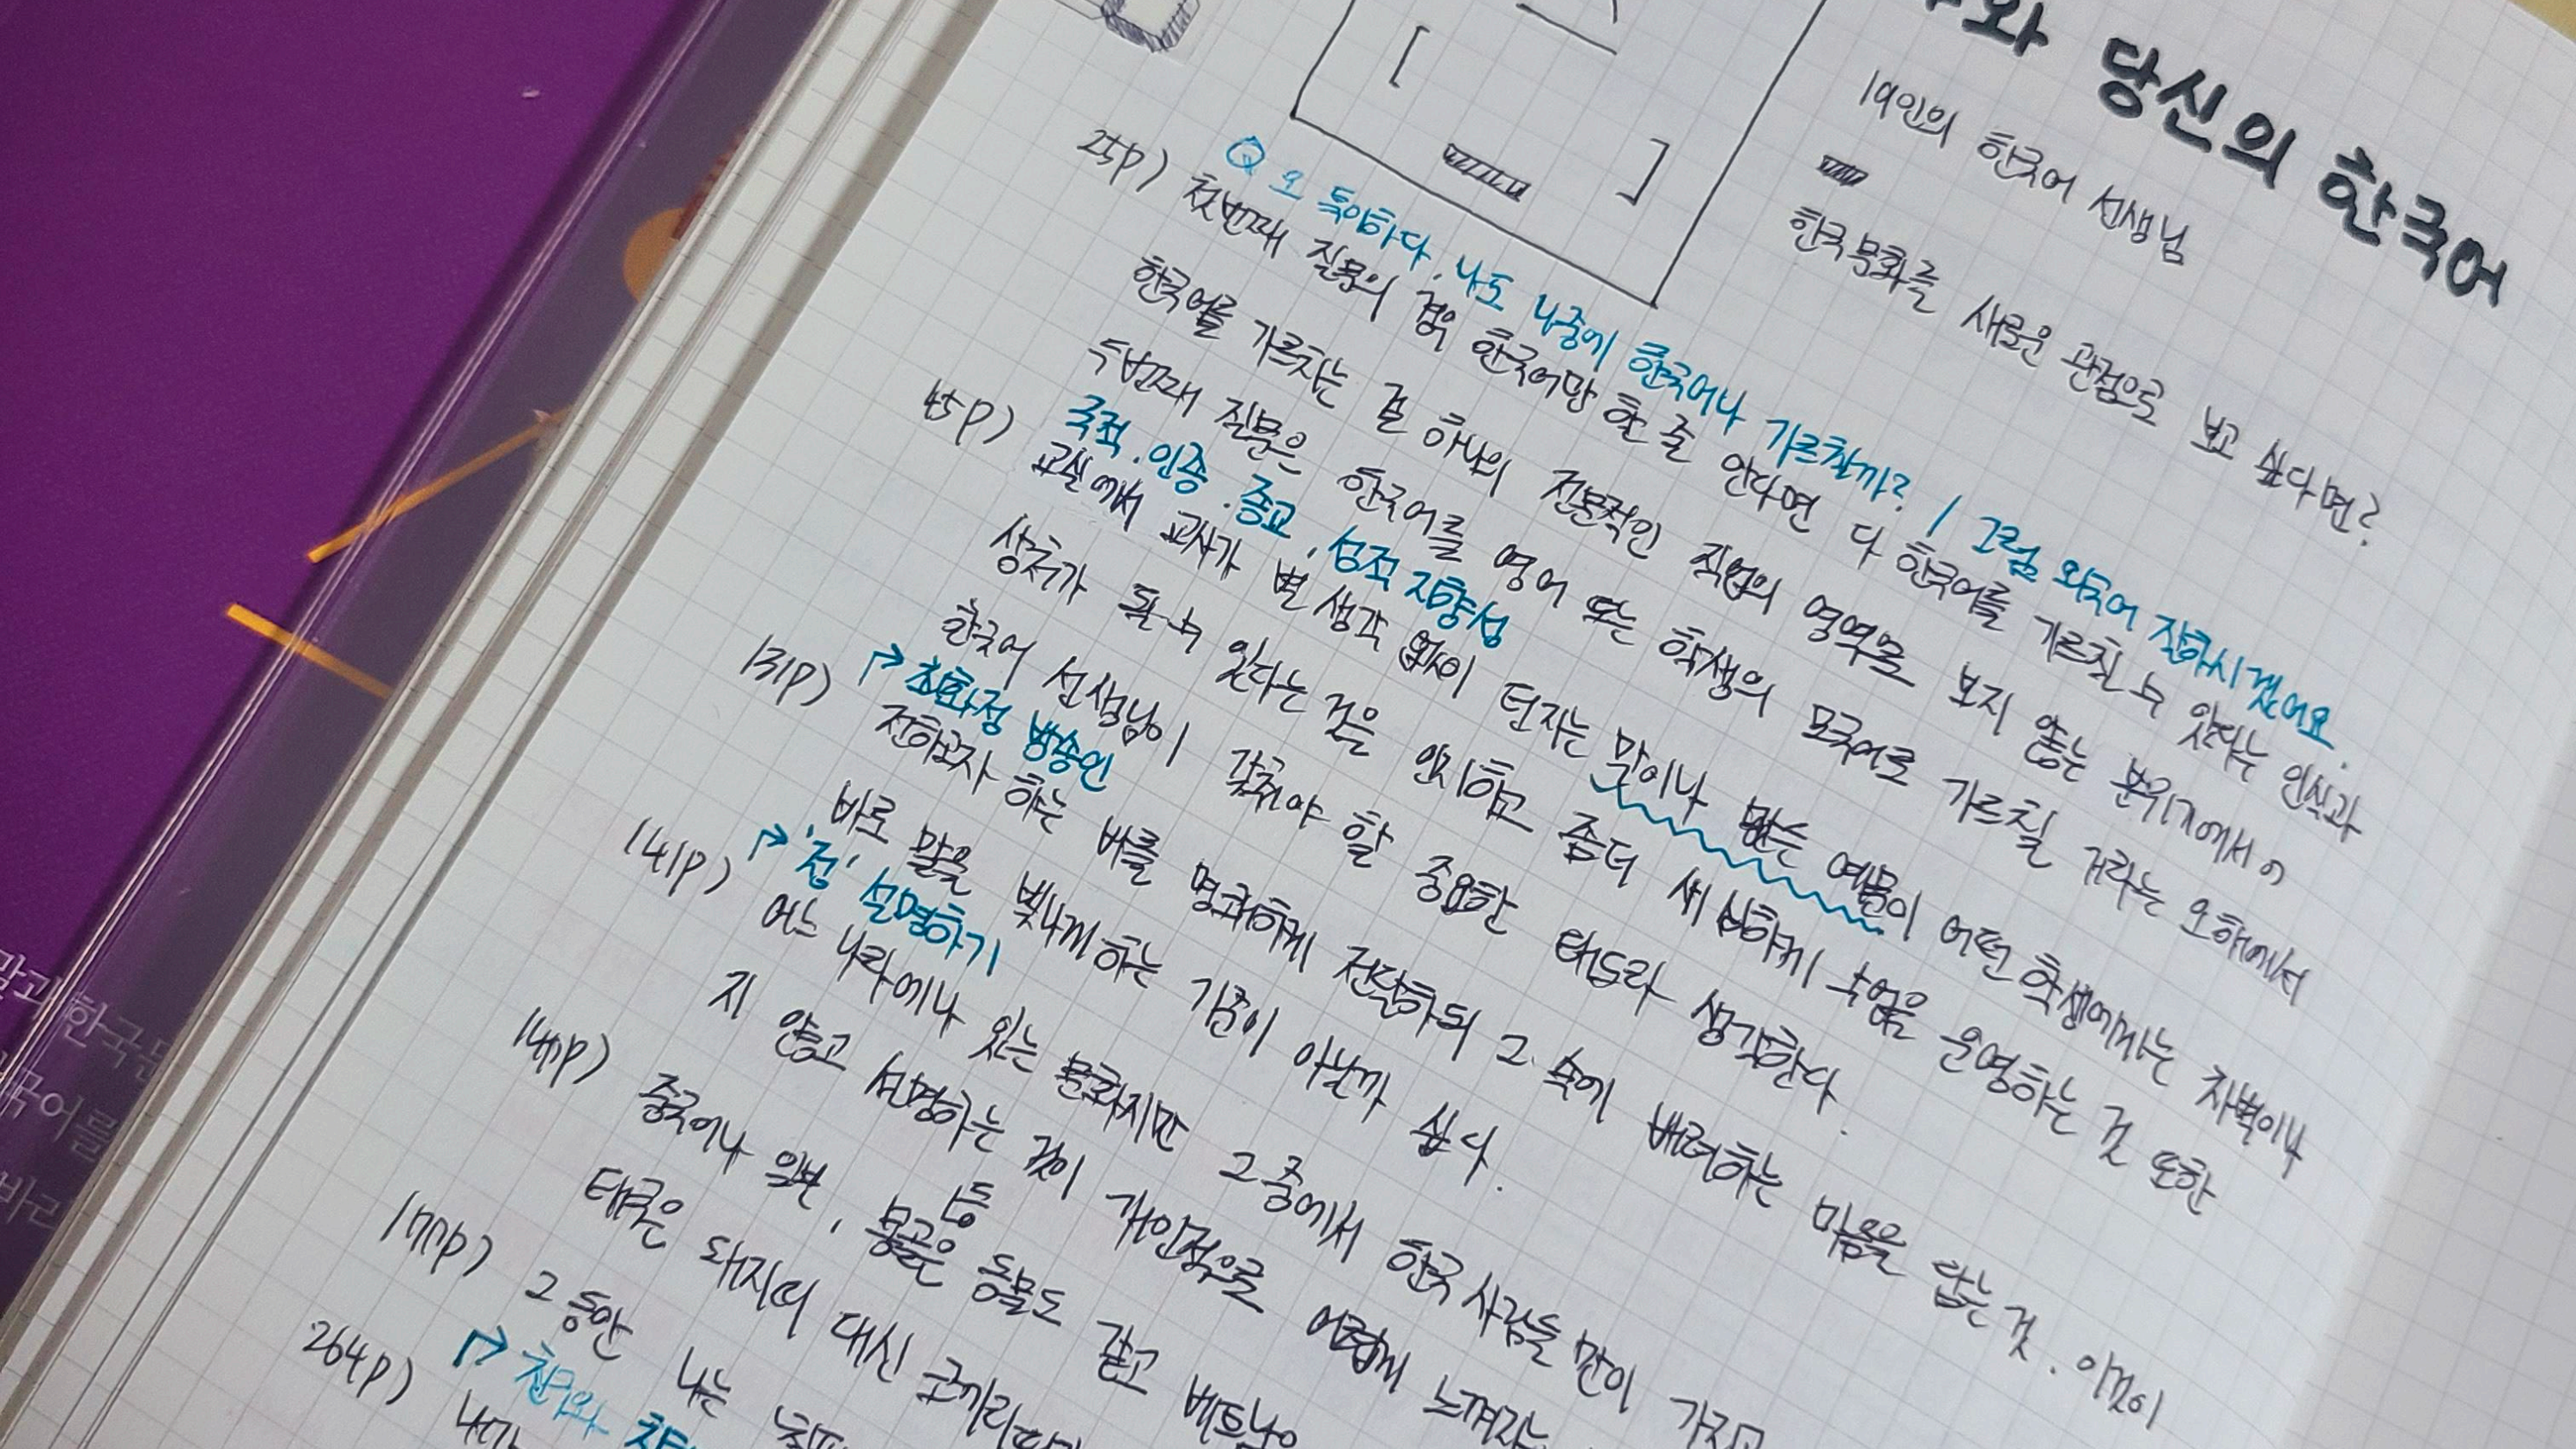 와 당신의 한국어
19인의 한국어 선생님
한국 문화를 새로운 관점으로 보고 싶다면?
Q 오 특이하다. 나도 나중에 한국어나 가르칠까? / 그럼 외국어 잘하시겠어요.
25p) 첫번째 질문의 경우 한국어만 할 줄 안다면 다 한국어를 가르칠 수 있다는 인식과
한국어를 가르치는 걸 하나의 전문적인 직업의 영역으로 보지 않는 분위기에서
두번째 질문은 한국어를 영어 또는 학생의 모국어로 가르칠 거라는 오해에서
국적. 인종. 종교, 성적 지향성
45p) 교실에서 교사가 별 생각 없이 던지는 말이나 맡는 예문이 어떤 학생에게는 차별이나
상처가 될 수 있다는 것을 인지하고 좀더 세심하게 수업을 운영하는 것 또한
한국어 선생님이 갖춰야 할 중요한 태도라 생각한다.
최화정 방송인
131p) 전하고자 하는 바를 명쾌하게 전달하되 그 속에 배려하는 마음을 담는 것. 이것이
바로 말을 빛나게 하는 기준이 아닌가 싶다.
'정' 설명하기
141p) 어느 나라에나 있는 문화지만 그 중에서 한국 사람들 만이 가지고
지 않고 설명하는 것이 개인적으로 어렵게 느껴지는
등
147p) 중국이나 일본, 몽골은 동물도 같고 베트남은
태국은 돼지띠 대신 코끼리띠
177p) 그동안 나는
친구와
264p) 내가
말과 한국
국어를
바라